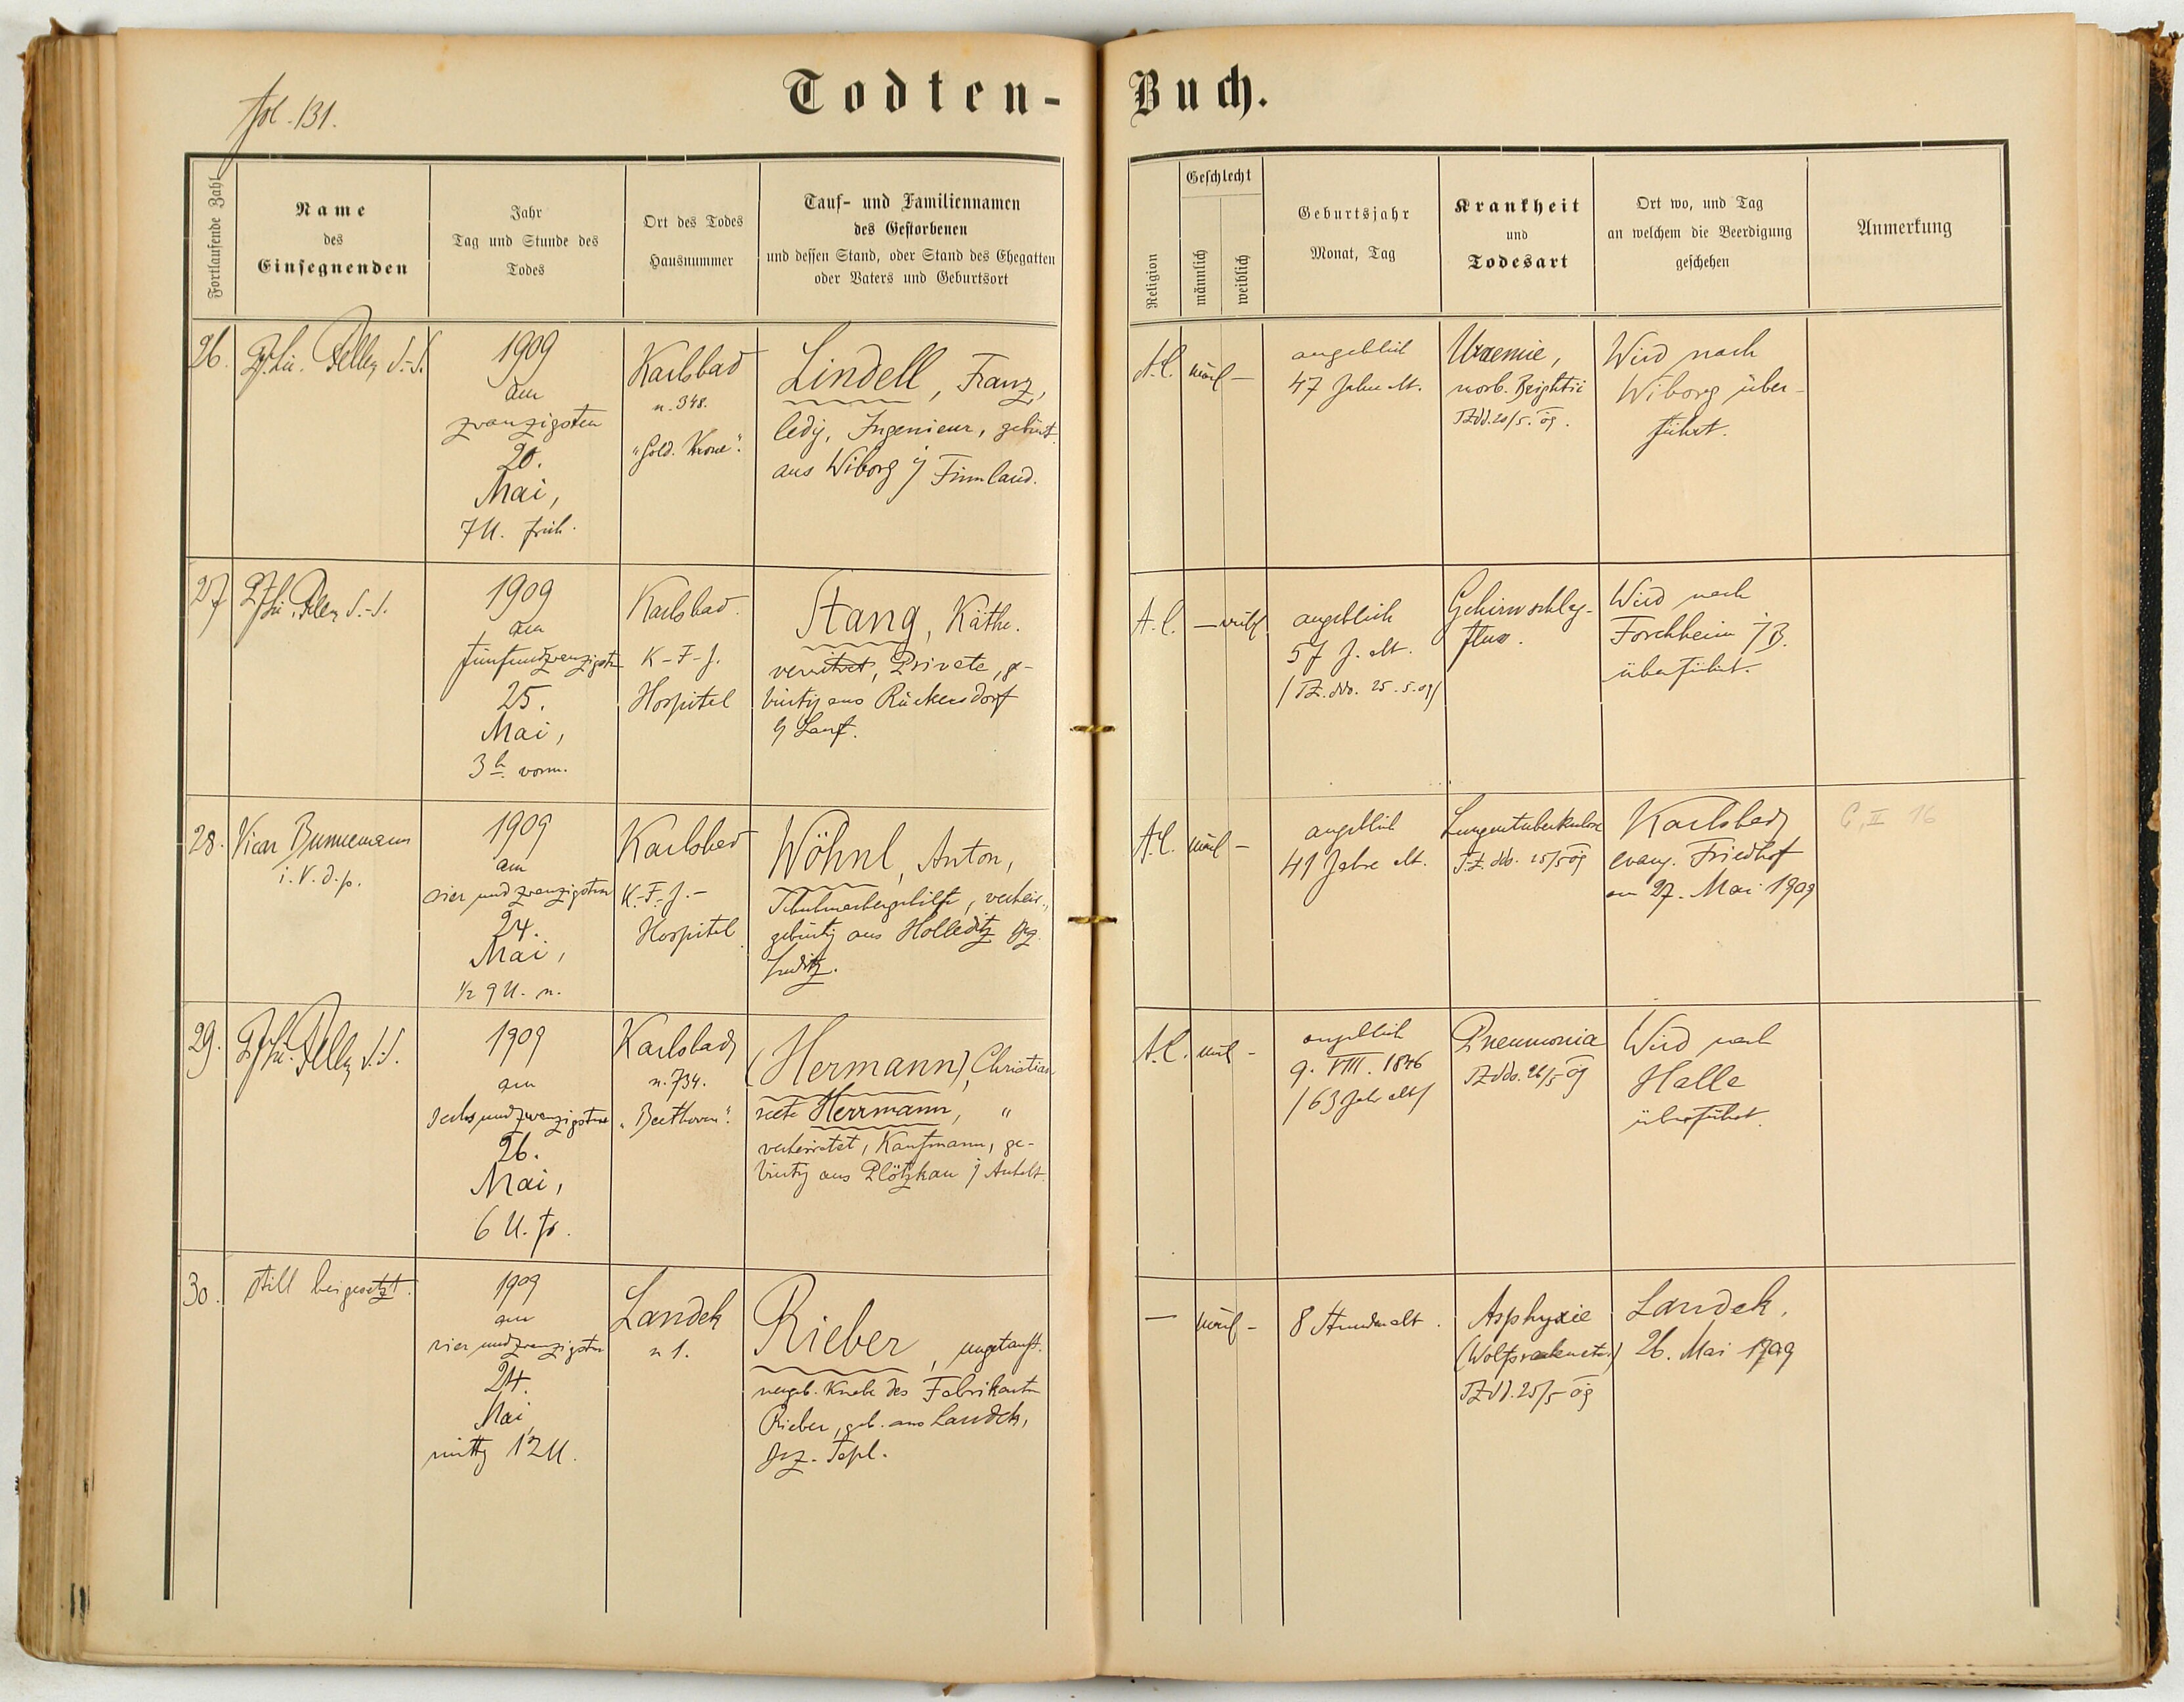 fol. 131.
Todten-Buch.
Fortlaufende Zahl
Name
des
Einsegnenden
Jahr
Tag und Stunde des
Todes
Ort des Todes
Hausnummer
Tauf- und Familiennamen
des Gestorbenen
und dessen Stand, oder Stand des Ehegatten
oder Vaters und Geburtsort
Religion
Geschlecht
männlich
weiblich
Geburtsjahr
Monat, Tag
Krankheit
und
Todesart
Ort wo, und Tag
an welchem die Beerdigung
geschehen
Anmerkung
26.
1909
am
zwanzigsten
20.
Mai,
7 U. früh.
Karlsbad
n. 348.
"Gold. Krone".
Lindell, Franz,
ledig, Ingenieur, gebürt.
aus Wiborg i/ Finnland.
A.C.
mänl –
angeblich
47 Jahre alt.
Uraemie,
morb. Brightii
TZ dd. 20/5. 09.
Wird nach
Wiborg über-
führt.
27
1909
am
fünfundzwanzigsten
25.
Mai,
3 h. vorm.
Karlsbad.
K-F-J.
Hospital
Stang, Käthe.
verwitwet, Private, ge-
bürtig aus Rückersdorf
b/ Lauf.
A.C.
– weibl
angeblich
57 J. alt.
/TZ. ddo. 25.5.09/
Gehirnschlag-
fluss.
Wird nach
Forchheim i/B.
überführt.
28.
Vicar Bunnemann
i. V. d. p.
1909
am
vierundzwanzigsten
24.
Mai,
1/2 9 U. n.
Karlsbad
K.-F.-J.-
Hospital
Wöhnl, Anton,
Schuhmachergehilfe, verheir.,
gebürtig aus Holleditz Bez.
Luditz.
A.C.
mänl –
angeblich
41 Jahre alt.
Lungentuberkulose
T.Z. dd. 25/5 09
Karlsbad,
evang. Friedhof
am 27. Mai 1909
C, II 16
29.
1909
am
sechsundzwanzigsten
26.
Mai,
6 U. fr.
Karlsbad,
n. 734.
"Beethoven".
(Hermann), Christian
recte Herrmann, "
verheiratet, Kaufmann, ge-
bürtig aus Plötzkau i/ Anhalt.
A.C.
mänl –
angeblich
9. VIII. 1846
/63 Jahr alt/
Pneumonia
TZ ddo. 26/5 09
Wird nach
Halle
überführt.
30.
Still beigesetzt.
1909
am
vierundzwanzigsten
24.
Mai
mittg 12 U.
Landek
n 1.
Rieber, ungetauft.
neugeb. Knabe des Fabrikanten
Rieber, geb. aus Landek,
Bez. Tepl.
—
mänl –
8 Stunden alt.
Asphyxie
(Wolfsrachen)
TZ dd. 25/5 09
Landek,
26. Mai 1909